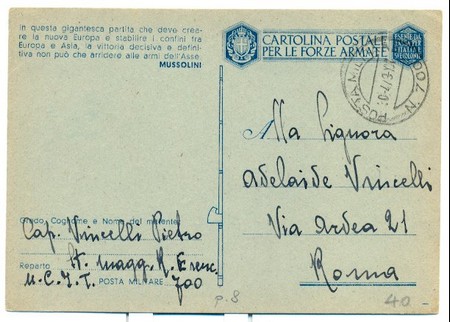 in questa gigantesca partita che deve crea-
re la nuova Europa e stabilire i confini fra
Europa e Asia, la vittoria decisiva e defini-
tiva non può che arridere alle armi dell'Asse.
MUSSOLINI
CARTOLINA POSTALE
PER LE FORZE ARMATE
ESENTE DA
POSTA MILITARE
Alla Signora
Adelaide Vincelli
Via Ardea 21
Roma
Grado Cognome e Nome del mittente:
Cap. Vincelli Pietro
Reparto St. Magg. R. Eserc.
M.C.I.T. POSTA MILITARE 700
p. 8
40-